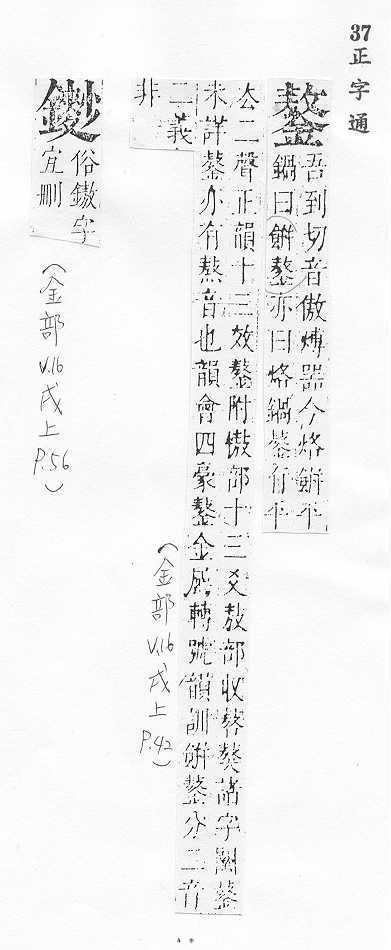 37 正字通
鏊
吾到切音傲煿器今烙餅平
鍋曰餅鏊亦曰烙鍋鏊有平
去二聲正韻十三效鏊附傲部十三爻敖部收
未詳鏊亦有熬音也韻會四豪鏊金屬轉號韻訓餅鏊分二音
二義
非
俗鏾字
宜刪
(金部 V.16 戌上 P.42)
(金部 V.16 戌上 P.56)